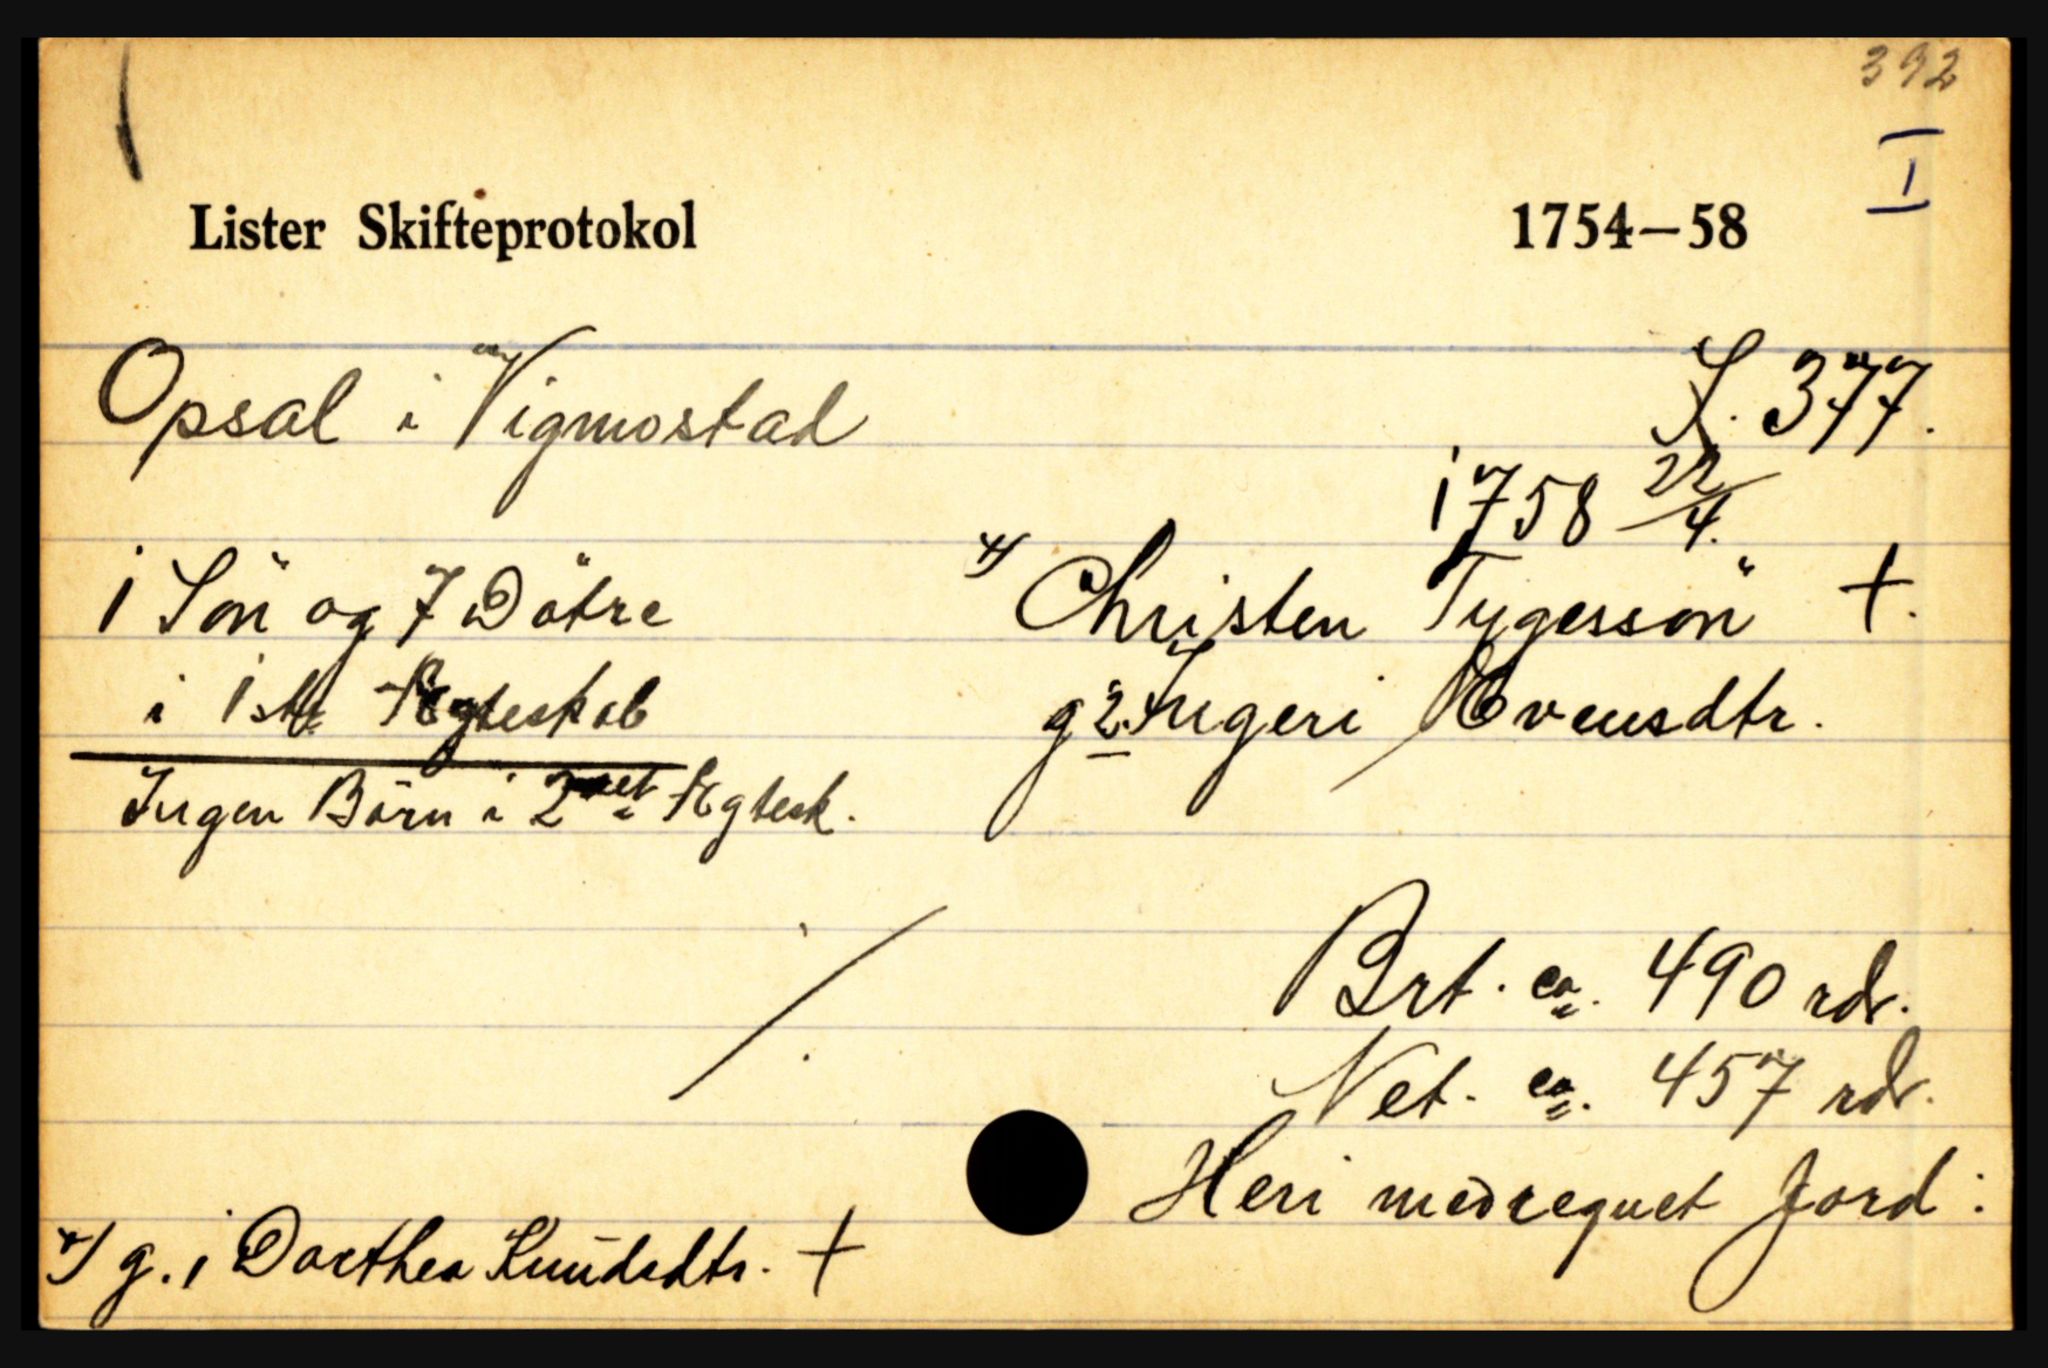 392
I
Lister Skifteprotokol 1754–58
Opsal i Vigmostad S. 377.
1758 22/4.
1 Sön og 7 Dötre x) Christen Tygessön †.
i 1ste Ægteskab g 2. Ingeri Evensdtr.
Ingen Börn i 2det Ægtesk.
Brt. ca. 490 rdr.
Net. ca. 457 rdr.
Heri medregnet Jord:
x) g. 1 Dorthea Knudsdtr. †